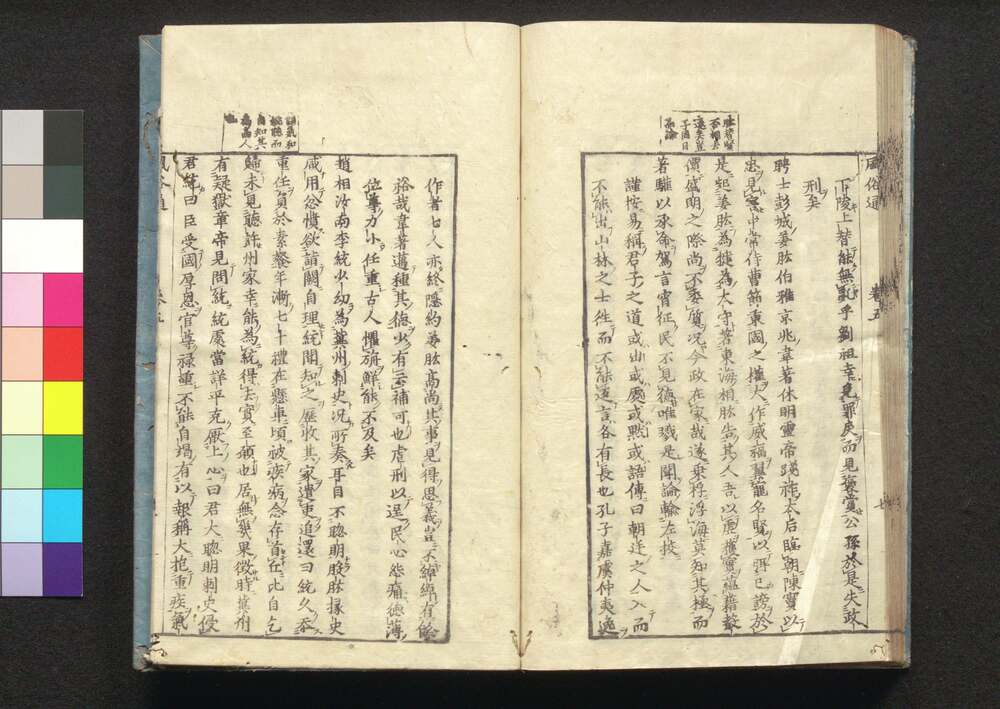 風俗通
卷五
下陵上替能無亂乎劉祖幸免罪戾而見褒賞公孫於是失政
刑矣
聘士彭城姜肱伯雅京兆韋著休明靈帝踐祚太后臨朝陳竇以
忠見害中常侍曹節秉國之權大作威福冀寵名賢以弭己謗於
是起姜肱為犍為太守著東海相肱告其人吾以虛獲實蘊藉聲
價盛明之際尚不委質況今政在家哉遂乘桴浮海莫知其極而
著驩以承命駕言宵征民不見德唯戮是聞論輸左校
謹按易稱君子之道或出或處或默或語傳曰朝廷之人入而
不能出山林之士往而不能返言各有長也孔子嘉虞仲夷逸
作者七人亦終隱約姜肱高尚其事見得思義豈不綽綽有餘
裕哉韋著邁種其德少有云補可也虐刑以逞民心怨痛德薄
位尊力小任重古人懼旃鮮能不及矣
趙相汝南李統少幼為冀州刺史況所奏耳目不聰明股肱掾史
咸用忿憤欲詣闕自理統聞知之歷收其家遣吏追還曰統久忝
重任負於素餐年漸七十禮在懸車頃被疾病念存首丘此自乞
歸未見聽許州家幸能為統得去實至願也居無幾果徵時冀州
有疑獄章帝見問統統處當詳平克厭上心曰君大聰明刺史侵
君統曰臣受國厚恩官尊祿重不能自竭有以報稱大抱重疾氣